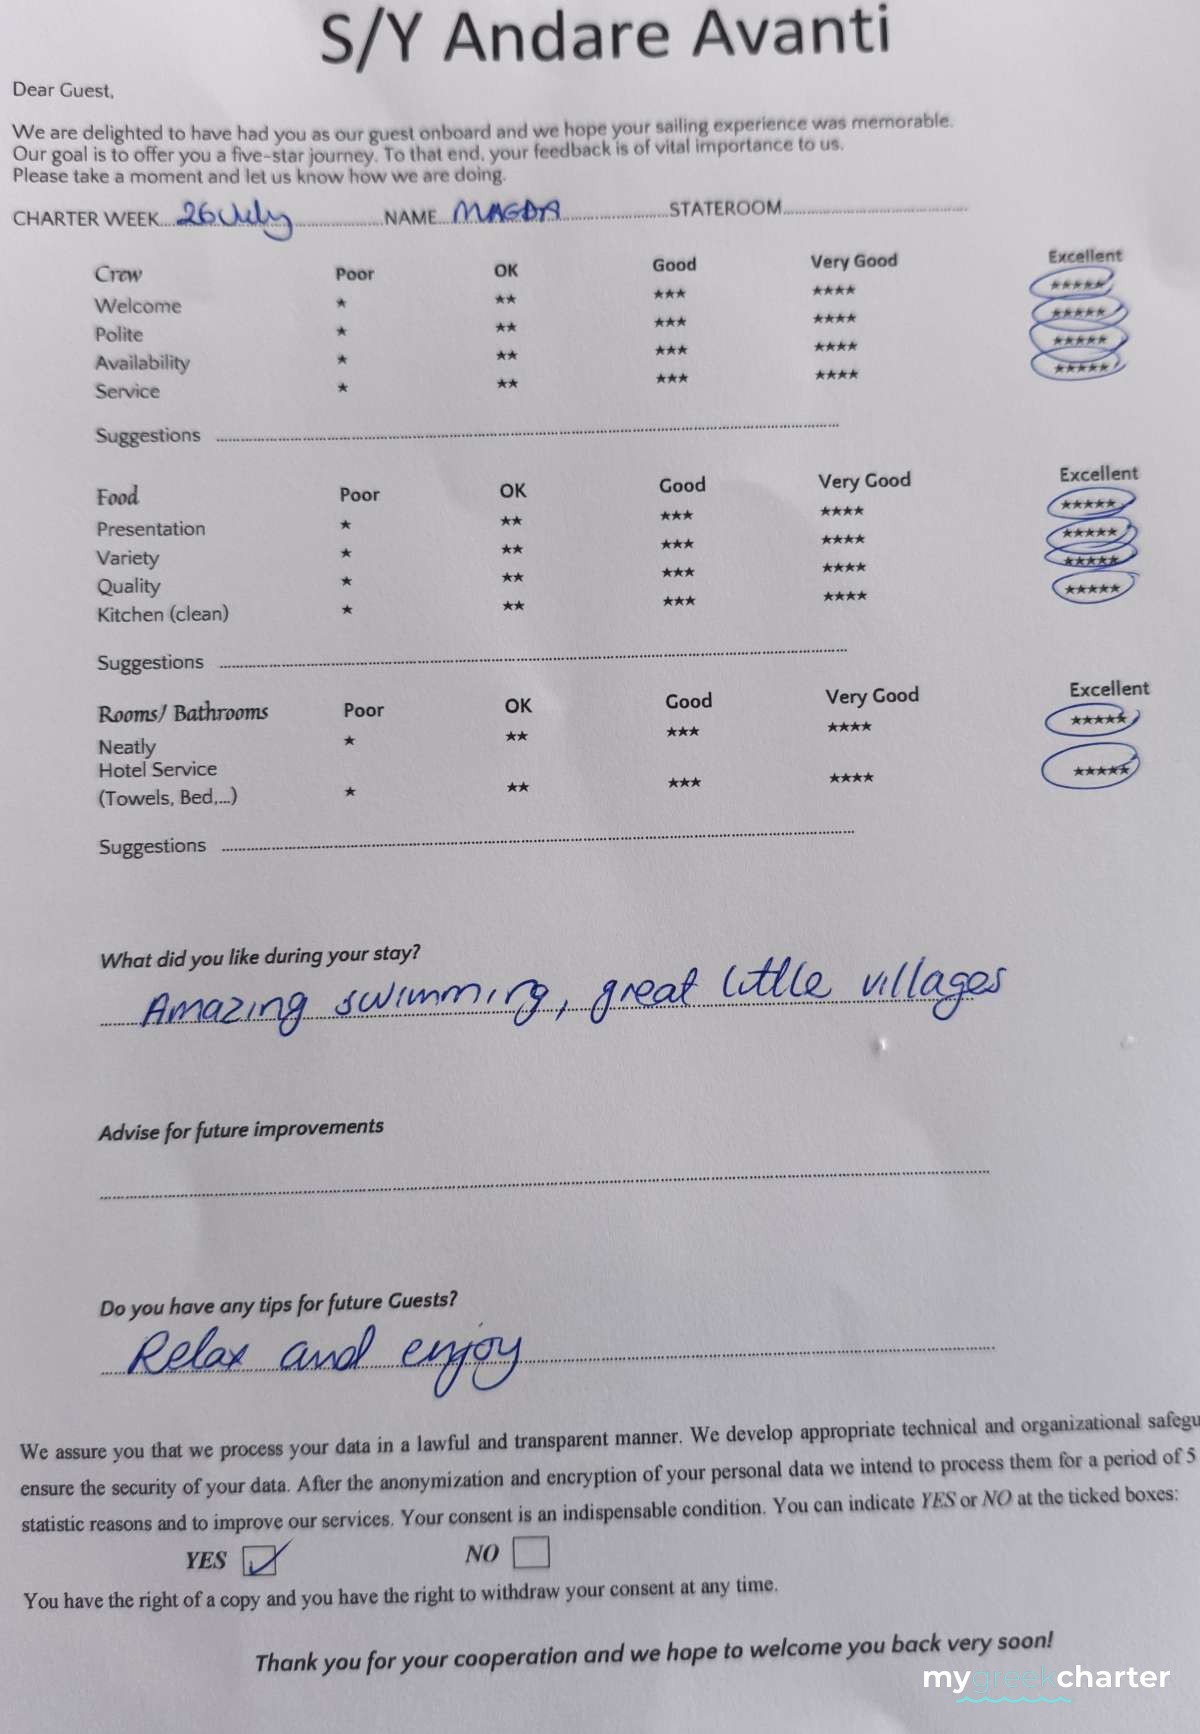 S/Y Andare Avanti
Dear Guest,
We are delighted to have had you as our guest onboard and we hope your sailing experience was memorable.
Our goal is to offer you a five-star journey. To that end, your feedback is of vital importance to us.
Please take a moment and let us know how we are doing.
CHARTER WEEK 26 July NAME MAGDA STATEROOM
Crew Poor OK Good Very Good Excellent
Welcome ★ ★★ ★★★ ★★★★ ★★★★★
Polite ★ ★★ ★★★ ★★★★ ★★★★★
Availability ★ ★★ ★★★ ★★★★ ★★★★★
Service ★ ★★ ★★★ ★★★★ ★★★★★
Suggestions
Food Poor OK Good Very Good Excellent
Presentation ★ ★★ ★★★ ★★★★ ★★★★★
Variety ★ ★★ ★★★ ★★★★ ★★★★★
Quality ★ ★★ ★★★ ★★★★ ★★★★★
Kitchen (clean) ★ ★★ ★★★ ★★★★ ★★★★★
Suggestions
Rooms/ Bathrooms Poor OK Good Very Good Excellent
Neatly ★ ★★ ★★★ ★★★★ ★★★★★
Hotel Service
(Towels, Bed,...) ★ ★★ ★★★ ★★★★ ★★★★★
Suggestions
What did you like during your stay?
Amazing swimming, great little villages
Advise for future improvements
Do you have any tips for future Guests?
Relax and enjoy
We assure you that we process your data in a lawful and transparent manner. We develop appropriate technical and organizational safegu
ensure the security of your data. After the anonymization and encryption of your personal data we intend to process them for a period of 5
statistic reasons and to improve our services. Your consent is an indispensable condition. You can indicate YES or NO at the ticked boxes:
YES NO
You have the right of a copy and you have the right to withdraw your consent at any time.
Thank you for your cooperation and we hope to welcome you back very soon!
mygreekcharter